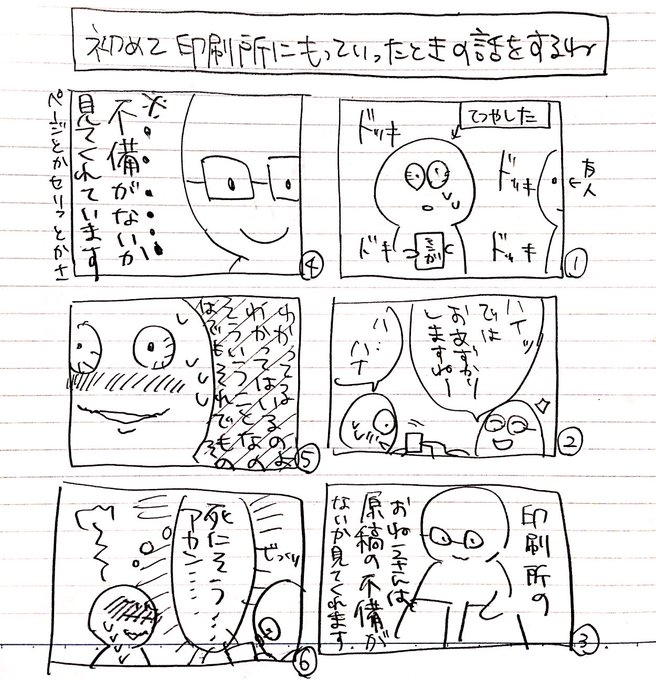 初めて印刷所にもっていったときの話をするね
てつやした
ドッキ
ドッキ
ドキ
ドッキ
友人
①
ハイッ
では
おあずかり
しますねー
ハ
ハイ
②
印刷所の
おねえさんは
原稿の不備が
ないか見てくれます
③
不備がないか
見てくれています
ページとかセリフとかさ
④
わかってる
わかってはいるのよ
そういうことなの
はでもそれでもその
⑤
死にそう
アカン……
びっくり
⑥